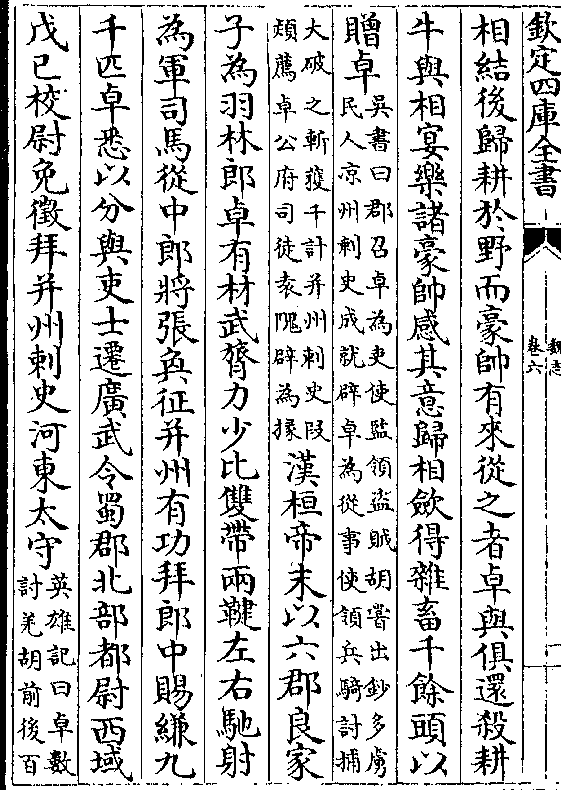 欽定四庫全書
魏志
卷六
相結後歸耕於野而豪帥有來從之者卓與俱還殺耕
牛與相宴樂諸豪帥感其意歸相歛得雜畜千餘頭以
贈卓
吳書曰郡召卓為吏使監領盜賊胡嘗出鈔多虜
民人凉州刺史成就辟卓為從事使領兵騎討捕
大破之斬獲千計并州刺史段
熲薦卓公府司徒袁隗辟為掾
漢桓帝末以六郡良家
子為羽林郎卓有材武膂力少比雙帶兩鞬左右馳射
為軍司馬從中郎將張奐征并州有功拜郎中賜縑九
千匹卓悉以分與吏士遷廣武令蜀郡北部都尉西域
戊巳校尉免徵拜并州刺史河東太守
英雄記曰卓數
討羌胡前後百